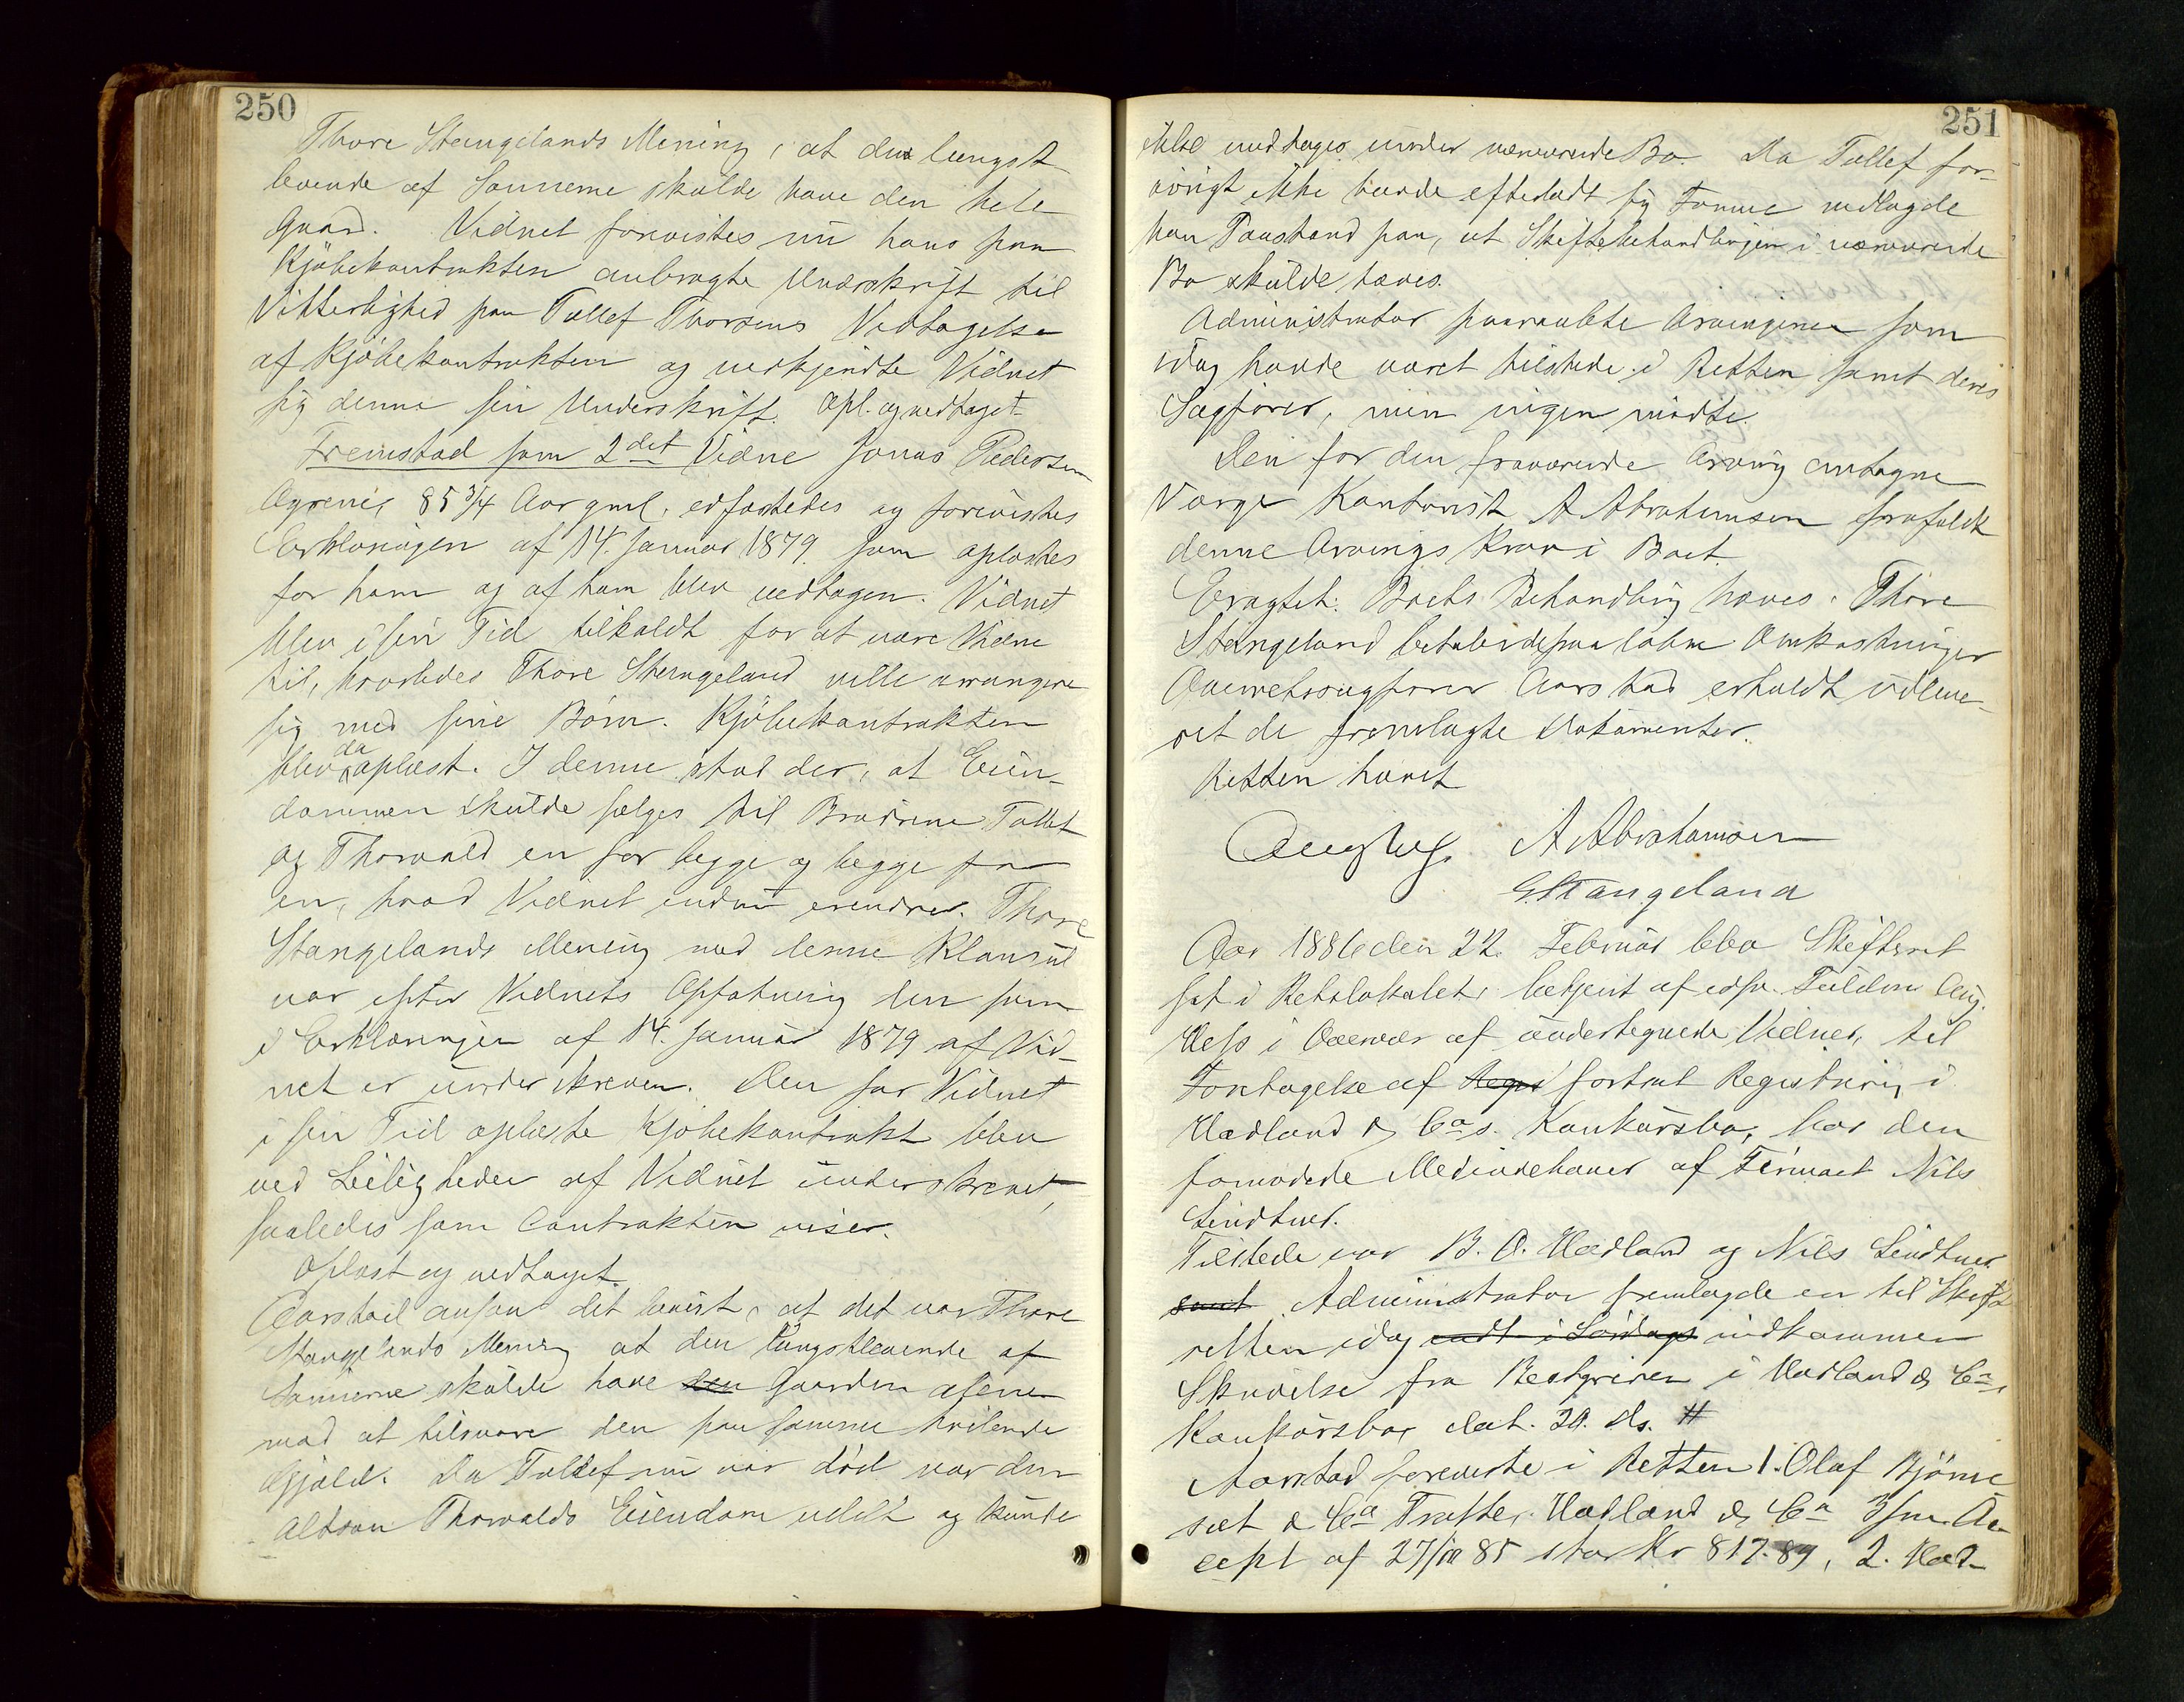 250
Thore Stangelands Mening, at den længst
levende af Sønnerne skulde have den hele
Gaard. Vidnet forevistes nu hans paa
Kjøbekontrakten anbragte Underskrift til
Vitterlighed paa Tollef Thorsens Vedtagelse
af Kjøbekontrakten og vedkjendte Vidnet
sig denne sin Underskrift. Opl. og vedtaget
Fremstod som 2det Vidne Jonas Pedersen
85 3/4 Aar gml. edfæstedes og forevistes
Erklæringen af 14. Januar 1879 som oplæstes
for ham og af ham blev vedtagen. Vidnet
blev i sin Tid tilkaldt for at være Vidne
til, hvorledes Thore Stangeland vilde arrangere
sig med sine Børn. Kjøbekontrakten
blev da oplæst. I denne stod der, at Eien-
dommen skulde sælges til Brødrene Tollef
og Thorvald en for begge og begge for
en, hvad Vidnet endnu erindrer. Thore
Stangelands Mening med denne Klausul
var efter Vidnets Opfatning den som
i Erklæringen af 14. Januar 1879 af Vid-
net er underskreven. Den for Vidnet
i sin Tid oplæste Kjøbekontrakt blev
ved Leiligheden af Vidnet underskrevet,
saaledes som Contrakten viser.
Oplæst og vedtaget.
Aarstad ansaa det bevist, at det var Thore
Stangelands Mening at den længstlevende af
Sønnerne skulde have den Gaarden alene
mod at tilsvare den paa samme hvilende
Gjæld. Da Tollef nu var død var den
altsaa Thorvalds Eiendom udelt og kunde
251
ikke inddrages under nærværende Bo. Da Tollef for-
øvrigt ikke havde efterladt sig Formue nedlagde
han Paastand paa, at Skiftebehandlingen i nærværende
Bo skulde hæves.
Administrator paaraabte Arvingerne som
idag havde været tilstede i Retten samt deres
Sagfører, men ingen mødte.
Den for den fraværende Arving antagne
Værge Kontorist A Abrahamsen frafaldt
denne Arvings Krav i Boet.
Eragtet: Boets Behandling hæves. Thore
Stangeland betaler de paaløbne Omkostninger
Overretssagfører Aarstad erholdt udleve-
ret de fremlagte Dokumenter.
Retten hævet
Aug Hess. A Abrahamsen
G Stangeland
Aar 1886 den 22. Februar blev Skifteret
sat i Retslokalet, betjent af edsv. Fuldm. Aug.
Hess i Overvær af undertegnede Vidner, til
Foretagelse af Regis fortsat Registrering i
Hadland & Cos. Konkursbo, hos den
formodede Medindehaver af Firmaet Nils
Lindtner.
Tilstede var B. O. Hadland og Nils Lindtner
samt. Administrator fremlagde en til Skifte
retten idag indkommen
Skrivelse fra Bestyrer i Hadland & Co,
Konkursbo, dat. 20. ds. #
Aarstad foreviste i Retten 1. Olaf Bjørne
set & Co Tratte, Hadland & Co Ac-
cept af 85 stor Kr 817.89, 2. Had-